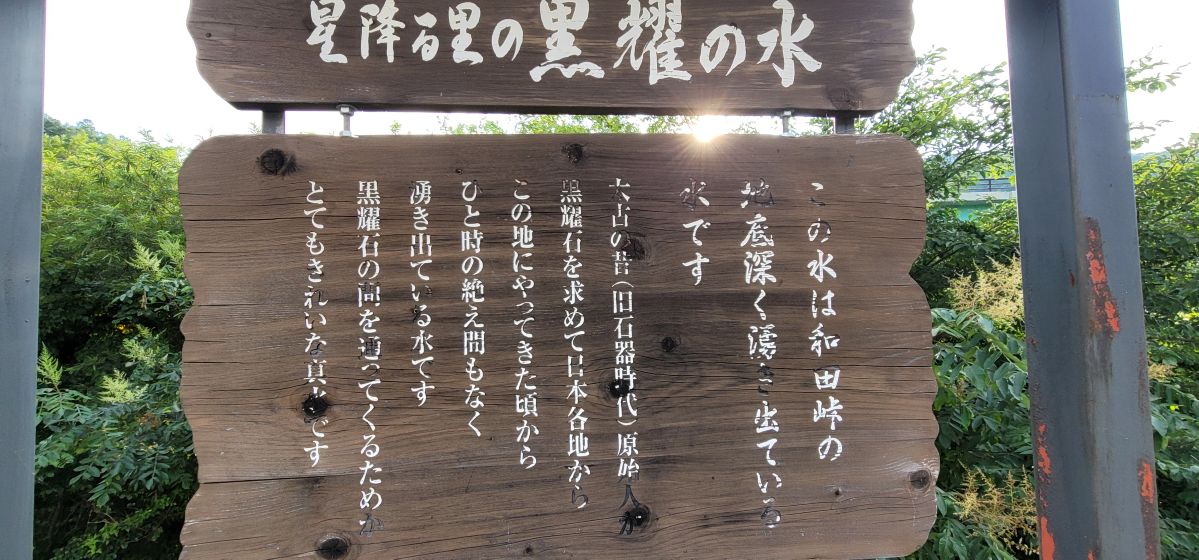 星降る里の黒耀の水
この水は和田峠の
地底深く湧き出ている
水です
太古の昔(旧石器時代)原始人が
黒耀石を求めて日本各地から
この地にやってきた頃から
ひと時の絶え間もなく
湧き出ている水です
黒耀石の間を通ってくるためか
とてもきれいな真水です